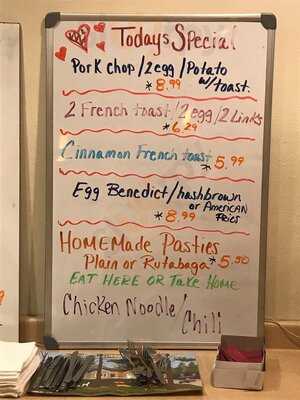 Todays Special
Pork chop/2egg/Potato
w/toast.
*8.99
2 French toast/2egg/2Links
*6.29
Cinnamon French toast *5.99
Egg Benedict/hashbrown
or American
Fries
*8.99
HOMEMade Pasties
Plain or Rutabaga *5.50
EAT HERE OR TAKE HOME
Chicken Noodle/
Chili